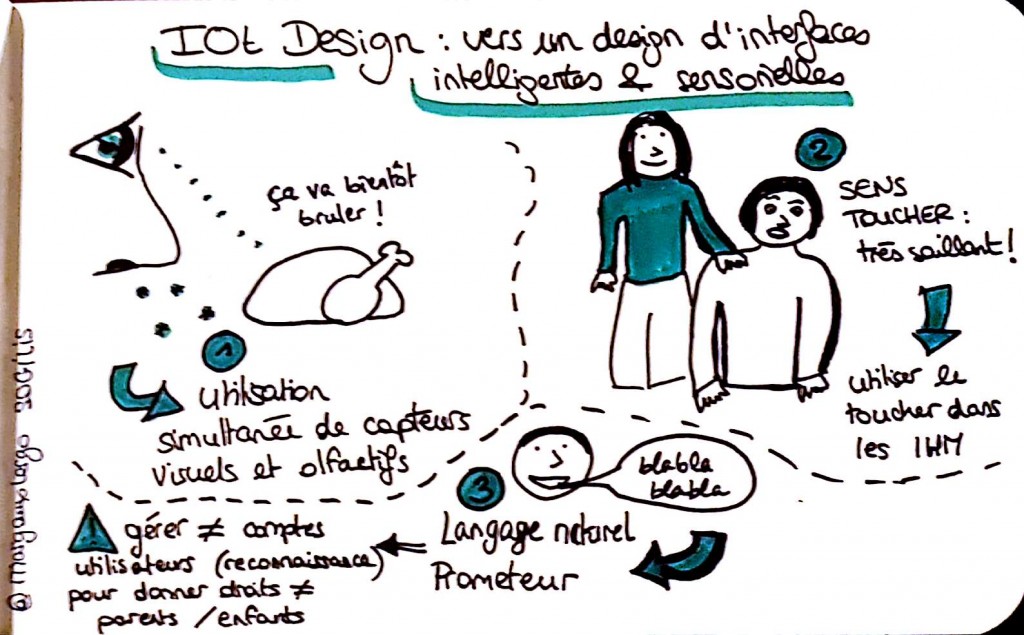 IOt Design : vers un design d'interfaces
intelligentes & sensorielles
ça va bientôt
bruler !
1
utilisation
simultanée de capteurs
visuels et olfactifs
2
SENS
TOUCHER :
très saillant !
utiliser le
toucher dans
les IHM
blabla
blabla
3
Langage naturel
Prometeur
! gérer ≠ comptes
utilisateurs (reconnaissance)
pour donner droits ≠
parents / enfants